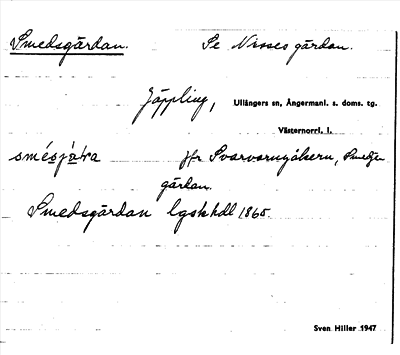 Smedsgårdan. Se Nisses gårdan.
Jäppling, Ullångers sn, Ångermanl. s. doms. tg.
Västernorrl. l.
smésjà̀ra jfr Svarvarnyåkern, Smedje
gårdan.
Smedsgårdan lgskhdl 1865.
Sven Hiller 1947